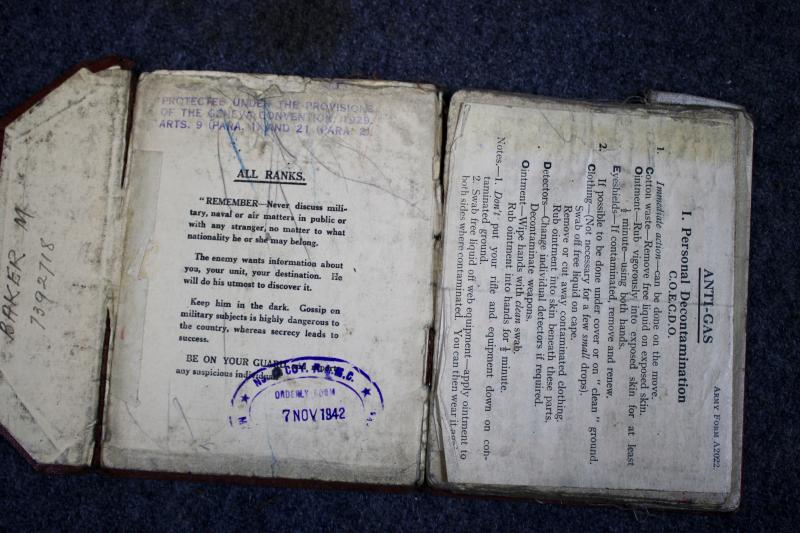 BAKER M
1392718
PROTECTED UNDER THE PROVISIONS
OF THE GENEVA CONVENTION, 1929,
ARTS. 9 (PARA. 1) AND 21 (PARA. 2).
ALL RANKS.
"REMEMBER—Never discuss mili-
tary, naval or air matters in public or
with any stranger, no matter to what
nationality he or she may belong.
The enemy wants information about
you, your unit, your destination. He
will do his utmost to discover it.
Keep him in the dark. Gossip on
military subjects is highly dangerous to
the country, whereas secrecy leads to
success.
BE ON YOUR GUARD
any suspicious individual
ORDERLY ROOM
7 NOV 1942
ARMY FORM A2022.
ANTI-GAS
I. Personal Decontamination
C.O.E.C.D.O.
1. Immediate action—can be done on the move.
Cotton waste—Remove free liquid on exposed skin.
Ointment—Rub vigorously into exposed skin for at least
½ minute—using both hands.
Eyeshields—If contaminated, remove and renew.
2. If possible to be done under cover or on "clean" ground.
Clothing—(Not necessary for a few small drops).
Swab off free liquid on cape.
Remove or cut away contaminated clothing.
Rub ointment into skin beneath these parts.
Detectors—Change individual detectors if required.
Decontaminate weapons.
Ointment—Wipe hands with clean swab.
Rub ointment into hands for ½ minute.
Notes.—1. Don't put your rifle and equipment down on con-
taminated ground.
2. Swab free liquid off web equipment—apply ointment to
both sides where contaminated. You can then wear it